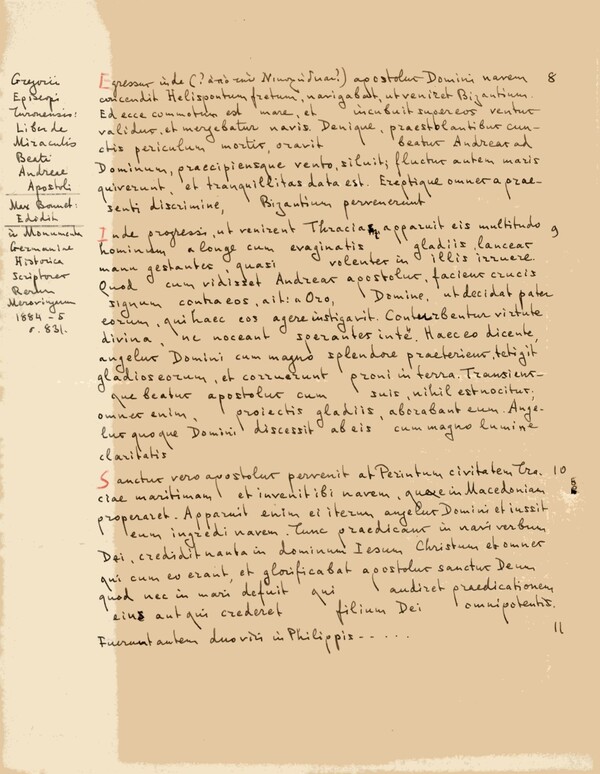 Gregorii
Episcopi
Turonensis:
Liber de
Miraculis
Beati
Andreae
Apostoli
Max Bonnet:
Edidit
in Monumenta
Germaniae
Historica
Scriptores
Rerum
Merovingum
1884-5
p. 831.
Egressus inde (? ἀπὸ τῶν) apostolus Domini navem 8
concendit Helispontum fretum, navigabat, ut veniret Bizantium.
Ed ecce commotum est mare, et incubuit super eos ventus
validus, et mergebatur navis. Denique, praestolantibus cun-
ctis periculum mortis, oravit beatus Andreas ad
Dominum, praecipiensque vento, siluit; fluctus autem maris
quiverunt, et tranquillitas data est. Ereptique omnes a prae-
senti discrimine, Bizantium pervenerunt
Inde progressi, ut venirent Thracias, apparuit eis multitudo 9
hominum a longe cum evaginatis gladiis, lanceas
manu gestantes, quasi volentes in illis irruere.
Quod cum vidisset Andreas apostolus, faciens crucis
signum contra eos, ait: a Oro, Domine, ut decidat pater
eorum, qui haec eos agere instigavit. Conturbentur virtute
divina, ne noceant sperantes in te. Haec eo dicente,
angelus Domini cum magno splendore praeteriens, tetigit
gladios eorum, et corruerunt proni in terra. Transiens-
que beatus apostolus cum suis, nihil est nocitus;
omnes enim, proiectis gladiis, aborabant eum. Ange-
lus quoque Domini discessit ab eis cum magno lumine
claritatis
Sanctus vero apostolus pervenit at Perintum civitatem Tra- 10
ciae maritimam et invenit ibi navem, quae in Macedoniam
properaret. Apparuit enim ei iterum angelus Domini et iussit
eum ingredi navem. Tunc praedicans in navi verbum
Dei, credidit nauta in dominum Iesum Christum et omnes
qui cum eo erant, et glorificabat apostolus sanctus Deum
quod nec in mari defuit qui audiret praedicationem
eius aut qui crederet filium Dei omnipotentis.
Fuerunt autem duo viri in Philippis - - . . . 11